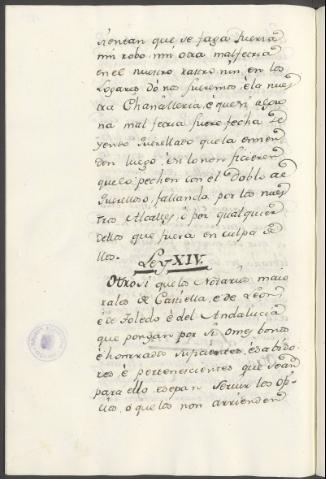 sientan que se faga fuerza
nin robo nin otra malfetria
en el nuestro rastro nin en los
Logares do nos fueremos, é la nues
tra Chancilleria, é que si algu
na mal fetria fuere fecha se
yendo querellado que la enmien
den luego, é si lo non ficieren
que lo pechen con el Doblo al
querelloso, fallando por los nues
tros Alcalles, ó por qualquier
dellos que fuera en culpa de
llos.
Ley XIV.
Otro si que los Notarios maio
rales de Castiella, e de Leon
é de Toledo é del Andalucia
que pongan por si Omes bonos
é honrrados suficientes, é sabido
res é pertenescientes que sean
para ello é sepan servir los ofi
cios, ó que los non arrienden